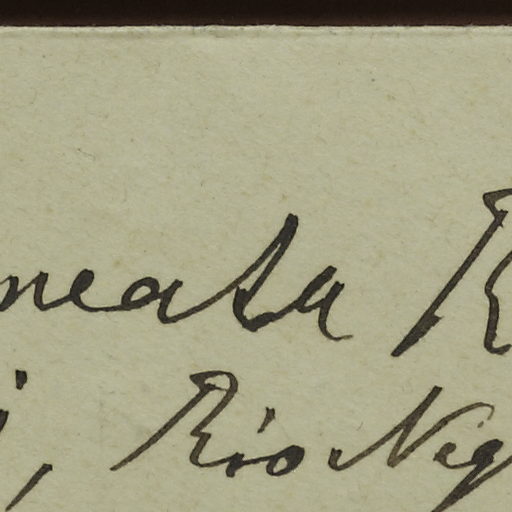 neata R
, Rio Neg